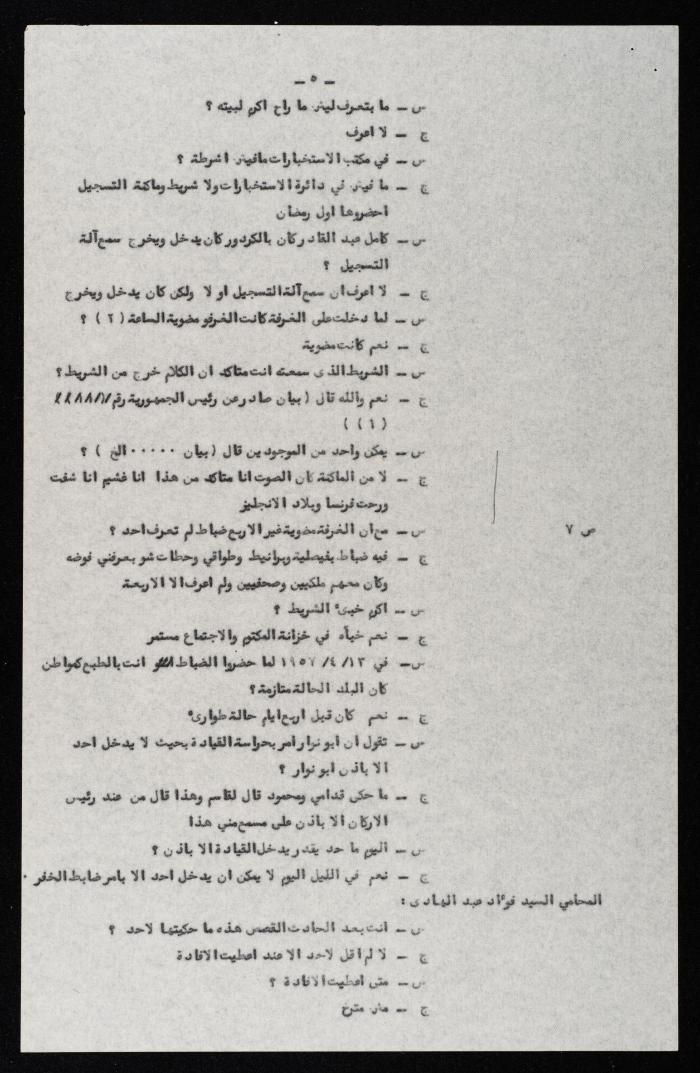 - ٥ -
س - ما بتعرف ليش ما راح اكرم لبيته ؟
ج - لا اعرف
س - في مكتب الاستخبارات مافيش اشرطة ؟
ج - ما فيش في دائرة الاستخبارات ولا شريط وماكنة التسجيل
احضروها اول رمضان
س - كامل عبد القادر كان بالكردور كان يدخل ويخرج سمع آلة
التسجيل ؟
ج - لا اعرف ان سمع آلة التسجيل او لا ولكن كان يدخل ويخرج
س - لما دخلت على الغرفة كانت الغرفو مضوية الساعة ( ٢ ) ؟
ج - نعم كانت مضوية
س - الشريط الذى سمعته انت متاكد ان الكلام خرج من الشريط ؟
ج - نعم والله قال ( بيان صادر عن رئيس الجمهورية رقم
( ١ ) )
س - يمكن واحد من الموجودين قال ( بيان ٠٠٠٠٠ الخ ) ؟
ج - لا من الماكنة كان الصوت انا متاكد من هذا انا غشيم انا شفت
ورحت فرنسا وبلاد الانجليز
س - مع ان الغرفة مضوية غير الاربع ضباط لم تعرف احد ؟
ص ٧
ج - فيه ضباط بفيصلية وبرانيط وطواقي وحطات شو بعرفني فوضه
وكان معهم ملكيين وصحفيين ولم اعرف الا الاربعة
س - اكرم خبىء الشريط ؟
ج - نعم خبأه في خزانة المكتوم والاجتماع مستمر
س - في ١٣/ ٤/ ١٩٥٧ لما حضروا الضباط انت بالطبع كمواطن
كان البلد الحالة متازمة ؟
ج - نعم كان قبل اربع ايام حالة طوارىء
س - تقول ان ابو نوار امر بحراسة القيادة بحيث لا يدخل احد
الا باذن ابو نوار ؟
ج - ما حكى قدامي ومحمود قال لقاسم وهذا قال من عند رئيس
الاركان الا باذن على مسمع مني هذا
س - اليوم ما حد يقدر يدخل القيادة الا باذن ؟
ج - نعم في الليل اليوم لا يمكن ان يدخل احد الا بامر ضابط الخفر ٠
المحامي السيد فؤاد عبد الهادى :
س - انت بعد الحادث القصص هذه ما حكيتها لاحد ؟
ج - لا لم اقل لاحد الا عند اعطيت الافادة
س - متى اعطيت الافادة ؟
ج - مش متخ